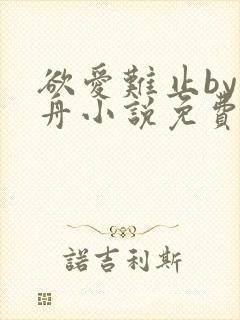 欲愛難止by
丹小說免費
諾吉利斯